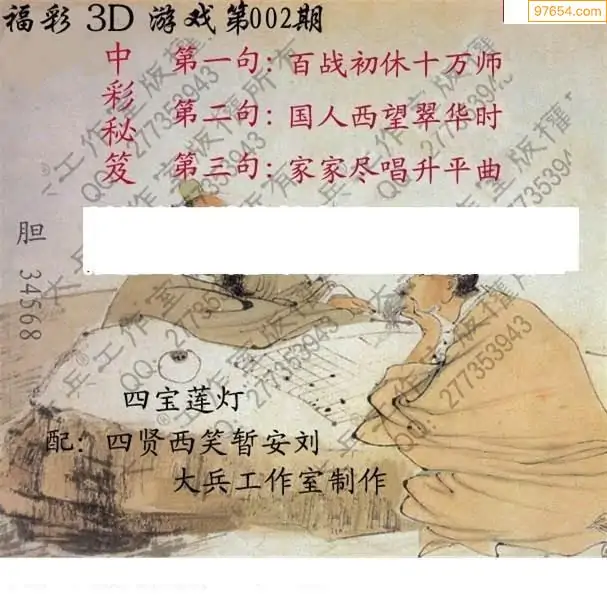 福彩 3D 游戏第002期
97654.com
中彩秘笈
第一句：百战初休十万师
第二句：国人西望翠华时
第三句：家家尽唱升平曲
胆 34568
四宝莲灯
配：四贤西笑暂安刘
大兵工作室制作
大兵®工作室版權所有
QQ：277353943